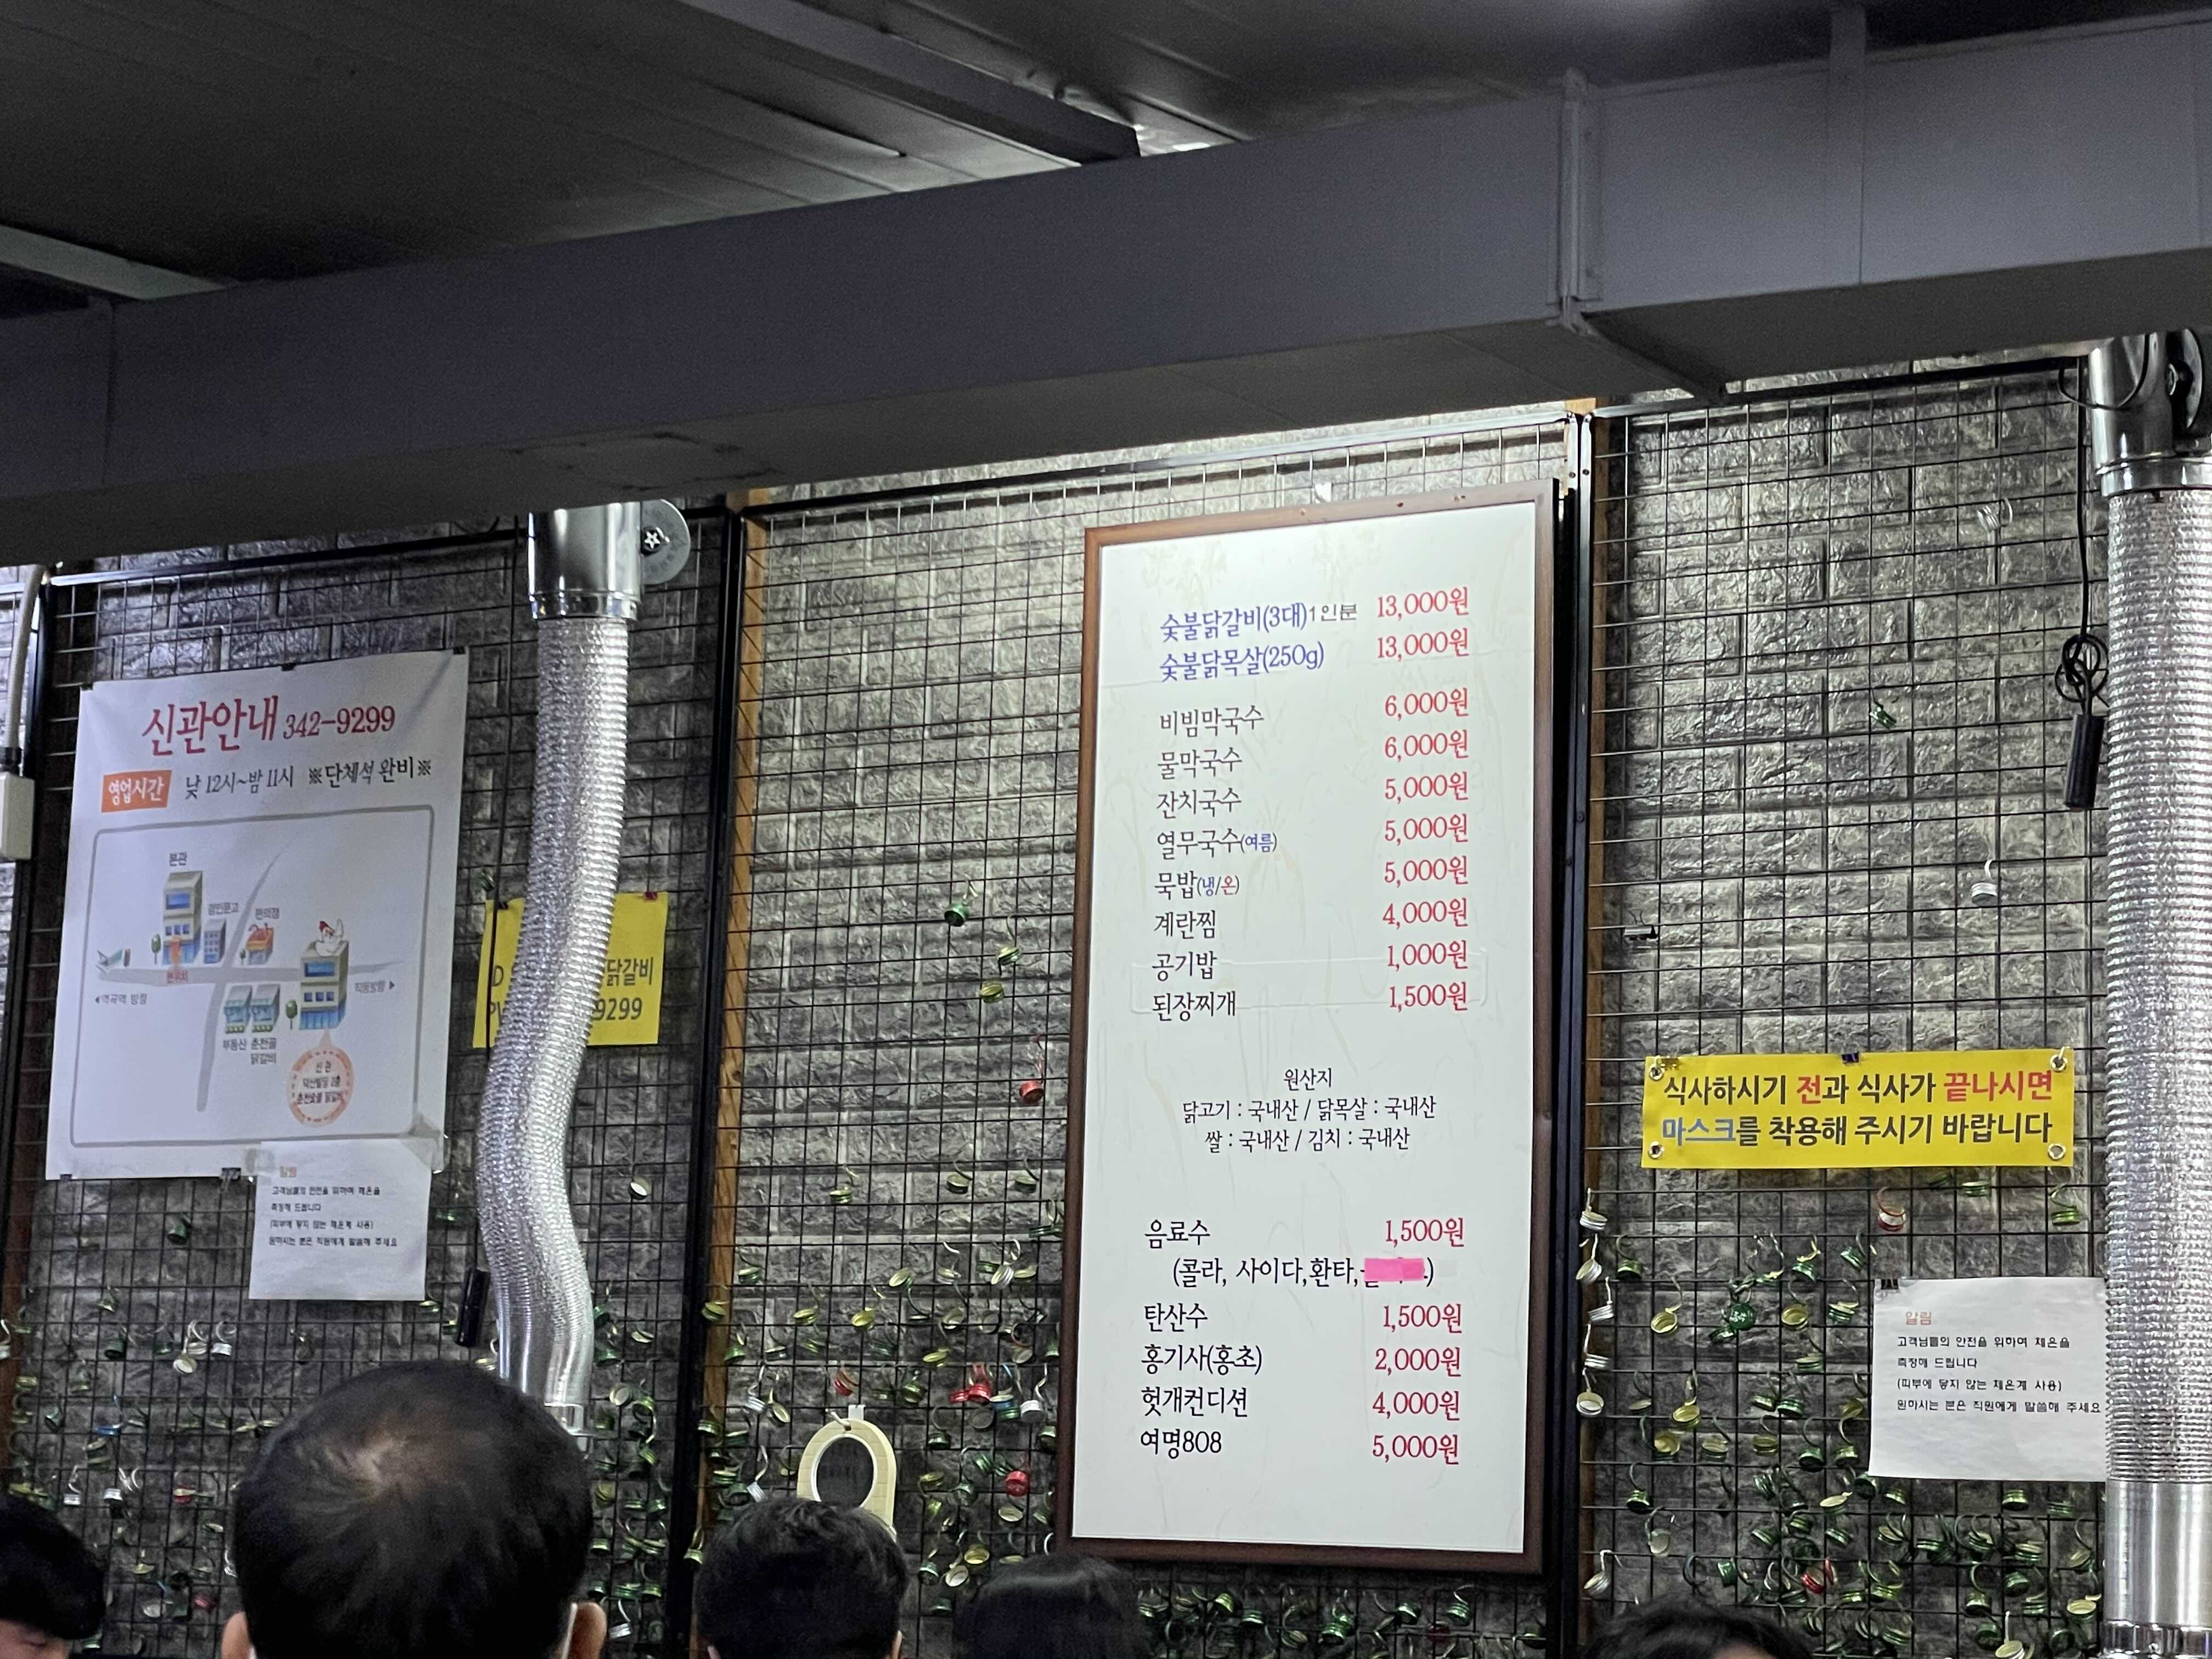 신관안내 342-9299
영업시간 낮 12시~밤 11시 ※단체석 완비※
본관
편의점
부동산 춘천골
닭갈비
신관
알림
고객님들의 안전을 위하여 체온을
측정해 드립니다
(피부에 닿지 않는 체온계 사용)
원하시는 분은 직원에게 말씀해 주세요
닭갈비
9299
숯불닭갈비(3대)1인분 13,000원
숯불닭목살(250g) 13,000원
비빔막국수 6,000원
물막국수 6,000원
잔치국수 5,000원
열무국수(여름) 5,000원
묵밥(냉/온) 5,000원
계란찜 4,000원
공기밥 1,000원
된장찌개 1,500원
원산지
닭고기 : 국내산 / 닭목살 : 국내산
쌀 : 국내산 / 김치 : 국내산
음료수 1,500원
(콜라, 사이다,환타, )
탄산수 1,500원
홍기사(홍초) 2,000원
헛개컨디션 4,000원
여명808 5,000원
식사하시기 전과 식사가 끝나시면
마스크를 착용해 주시기 바랍니다
알림
고객님들의 안전을 위하여 체온을
측정해 드립니다
(피부에 닿지 않는 체온계 사용)
원하시는 분은 직원에게 말씀해 주세요